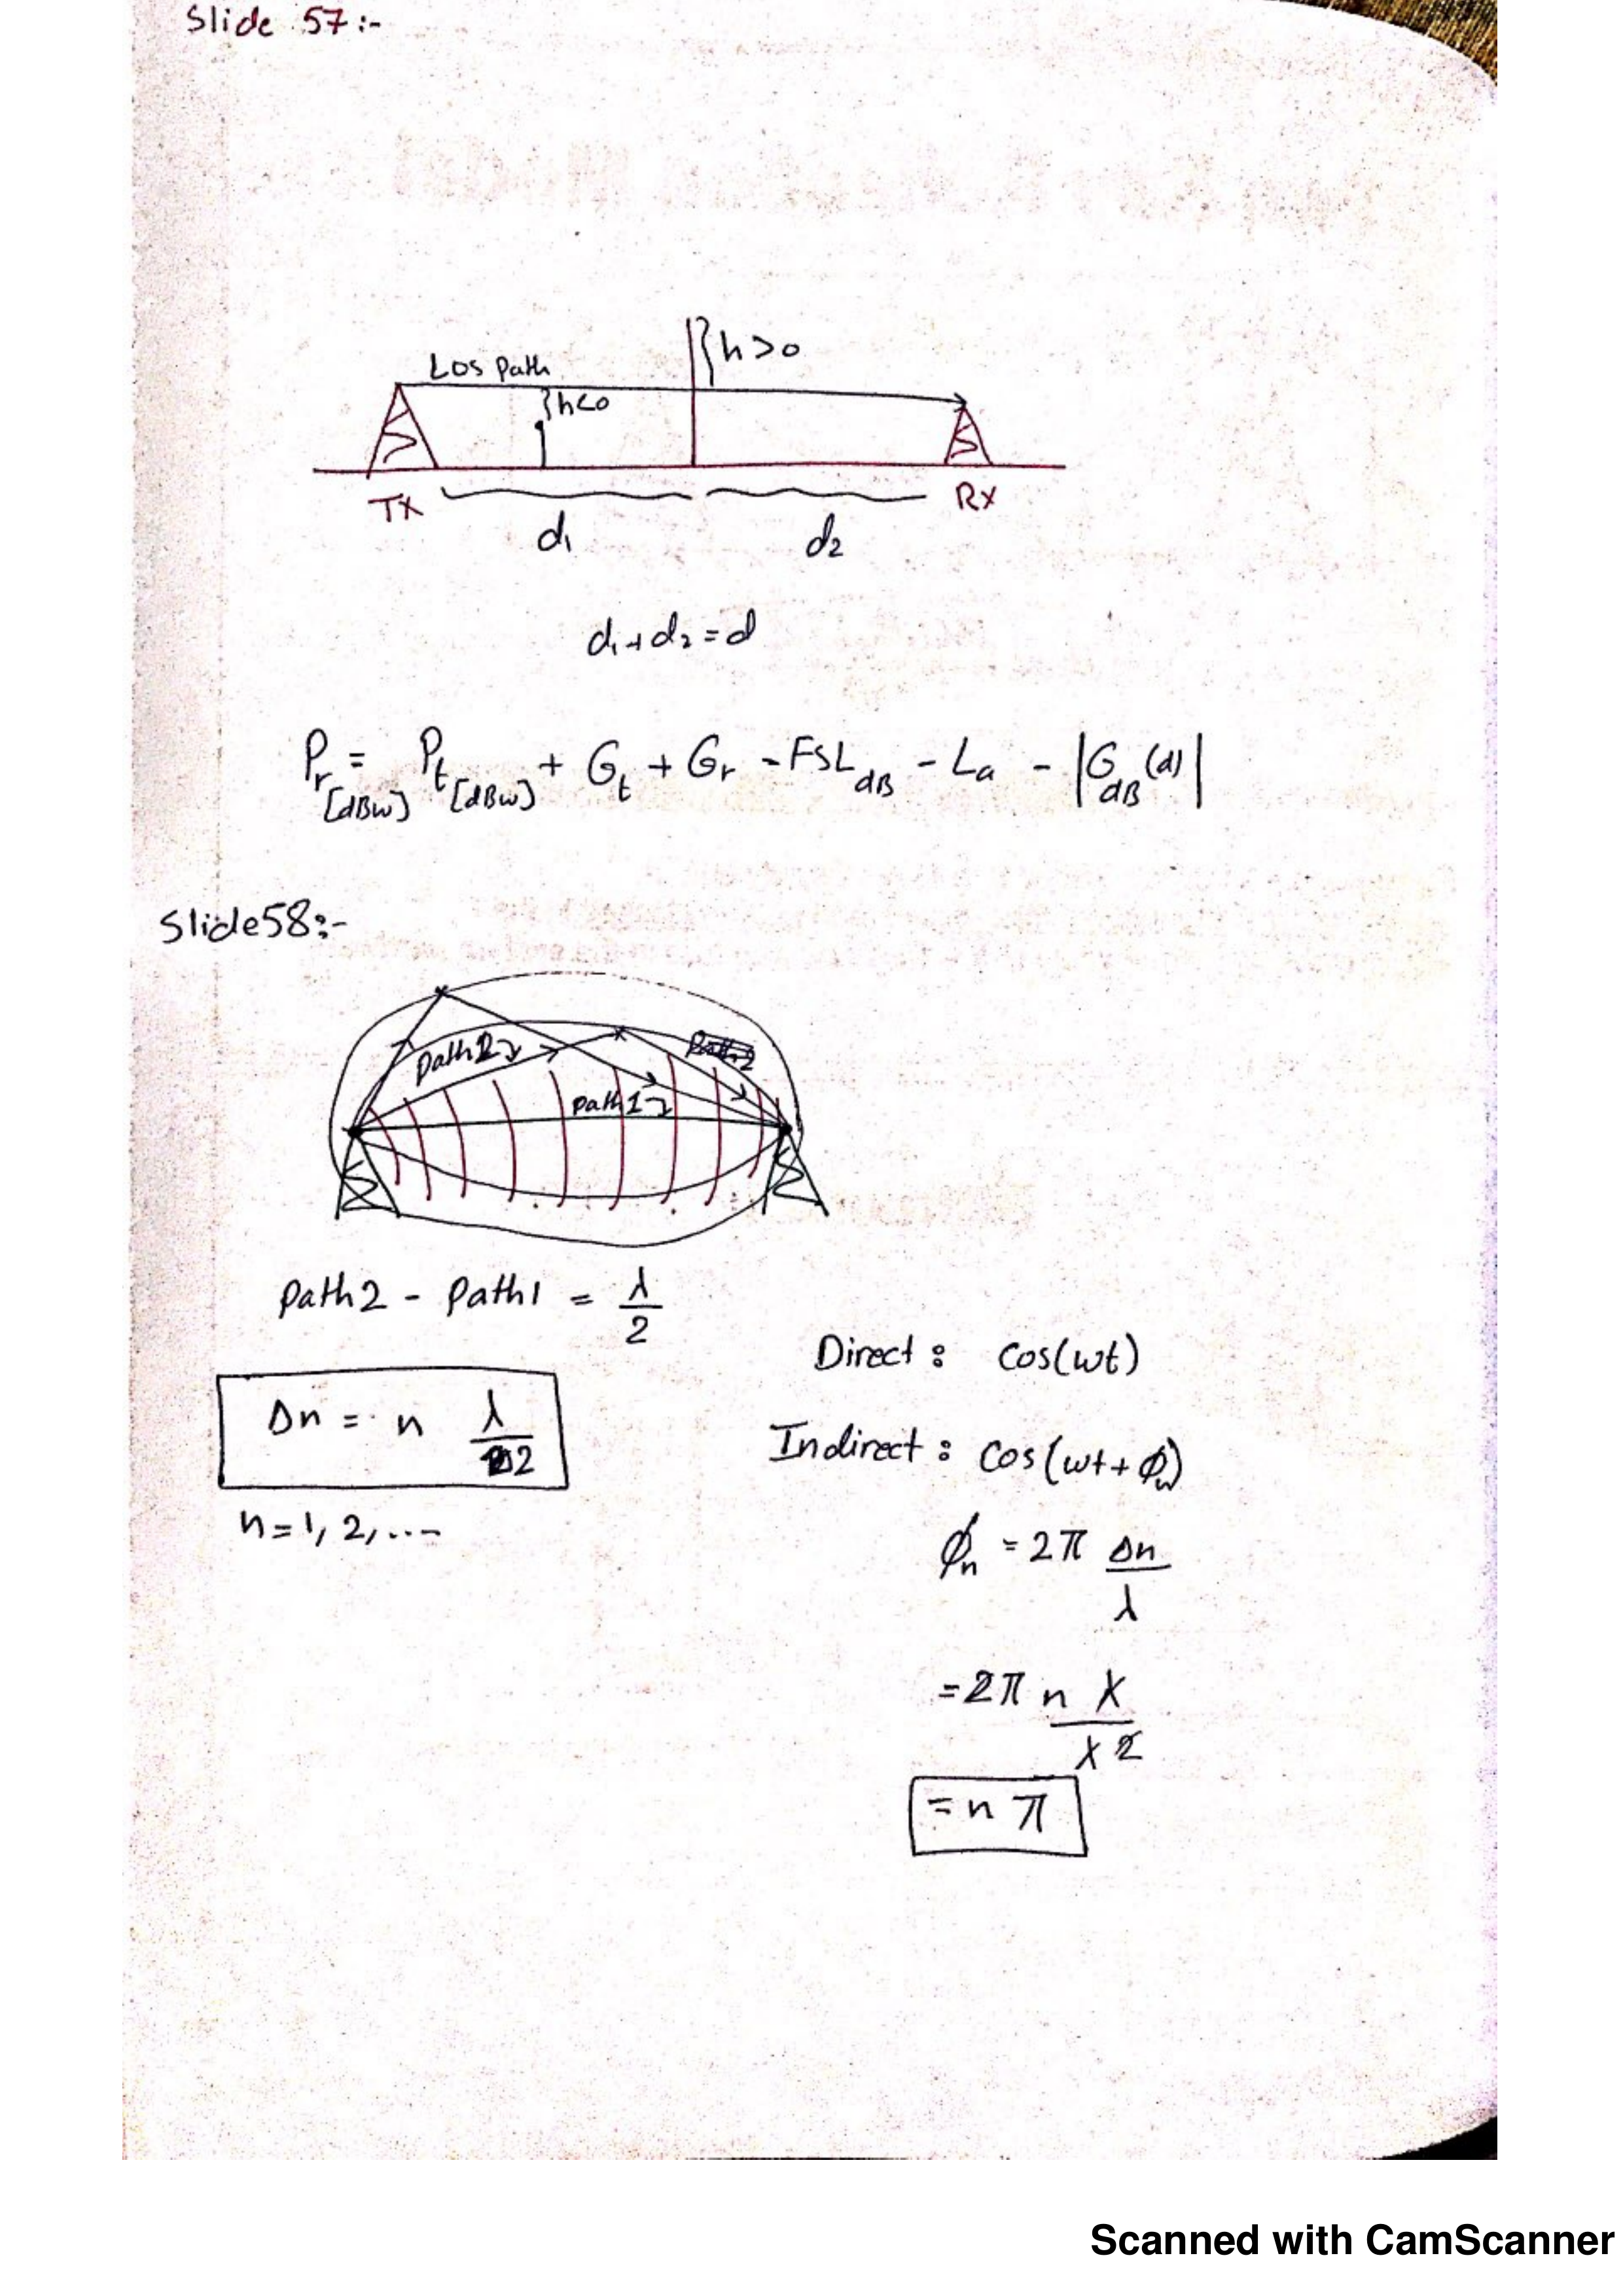 Slide 57:-
h>0
Los Path
h<0
Tx
Rx
d₁
d₂
d₁+d₂=d
Pr[dBw] = Pt[dBw] + Gt + Gr - FSLdB - La - |GdB(d)|
Slide58:-
Path2
path1
Path2 - Path1 = λ/2
Direct: Cos(wt)
Δn = n λ/2
Indirect: Cos(wt+ϕn)
n=1, 2, ...
ϕn = 2π Δn/λ
=2π n λ/λ2
= n π
Scanned with CamScanner